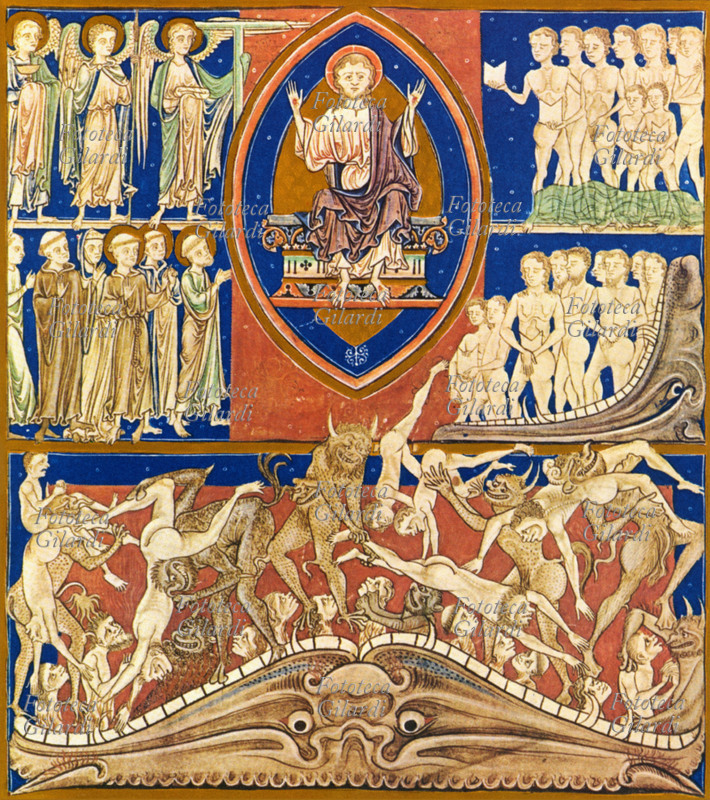 Fototeca
Gilardi
Fototeca
Gilardi
Fototeca
Gilardi
Fototeca
Gilardi
Fototeca
Gilardi
Fototeca
Gilardi
Fototeca
Gilardi
Fototeca
Gilardi
Fototeca
Gilardi
Fototeca
Gilardi
Fototeca
Gilardi
Fototeca
Gilardi
Fototeca
Gilardi
Fototeca
Gilardi
Fototeca
Gilardi
Fototeca
Gilardi
Fototeca
Gilardi
Fototeca
Gilardi